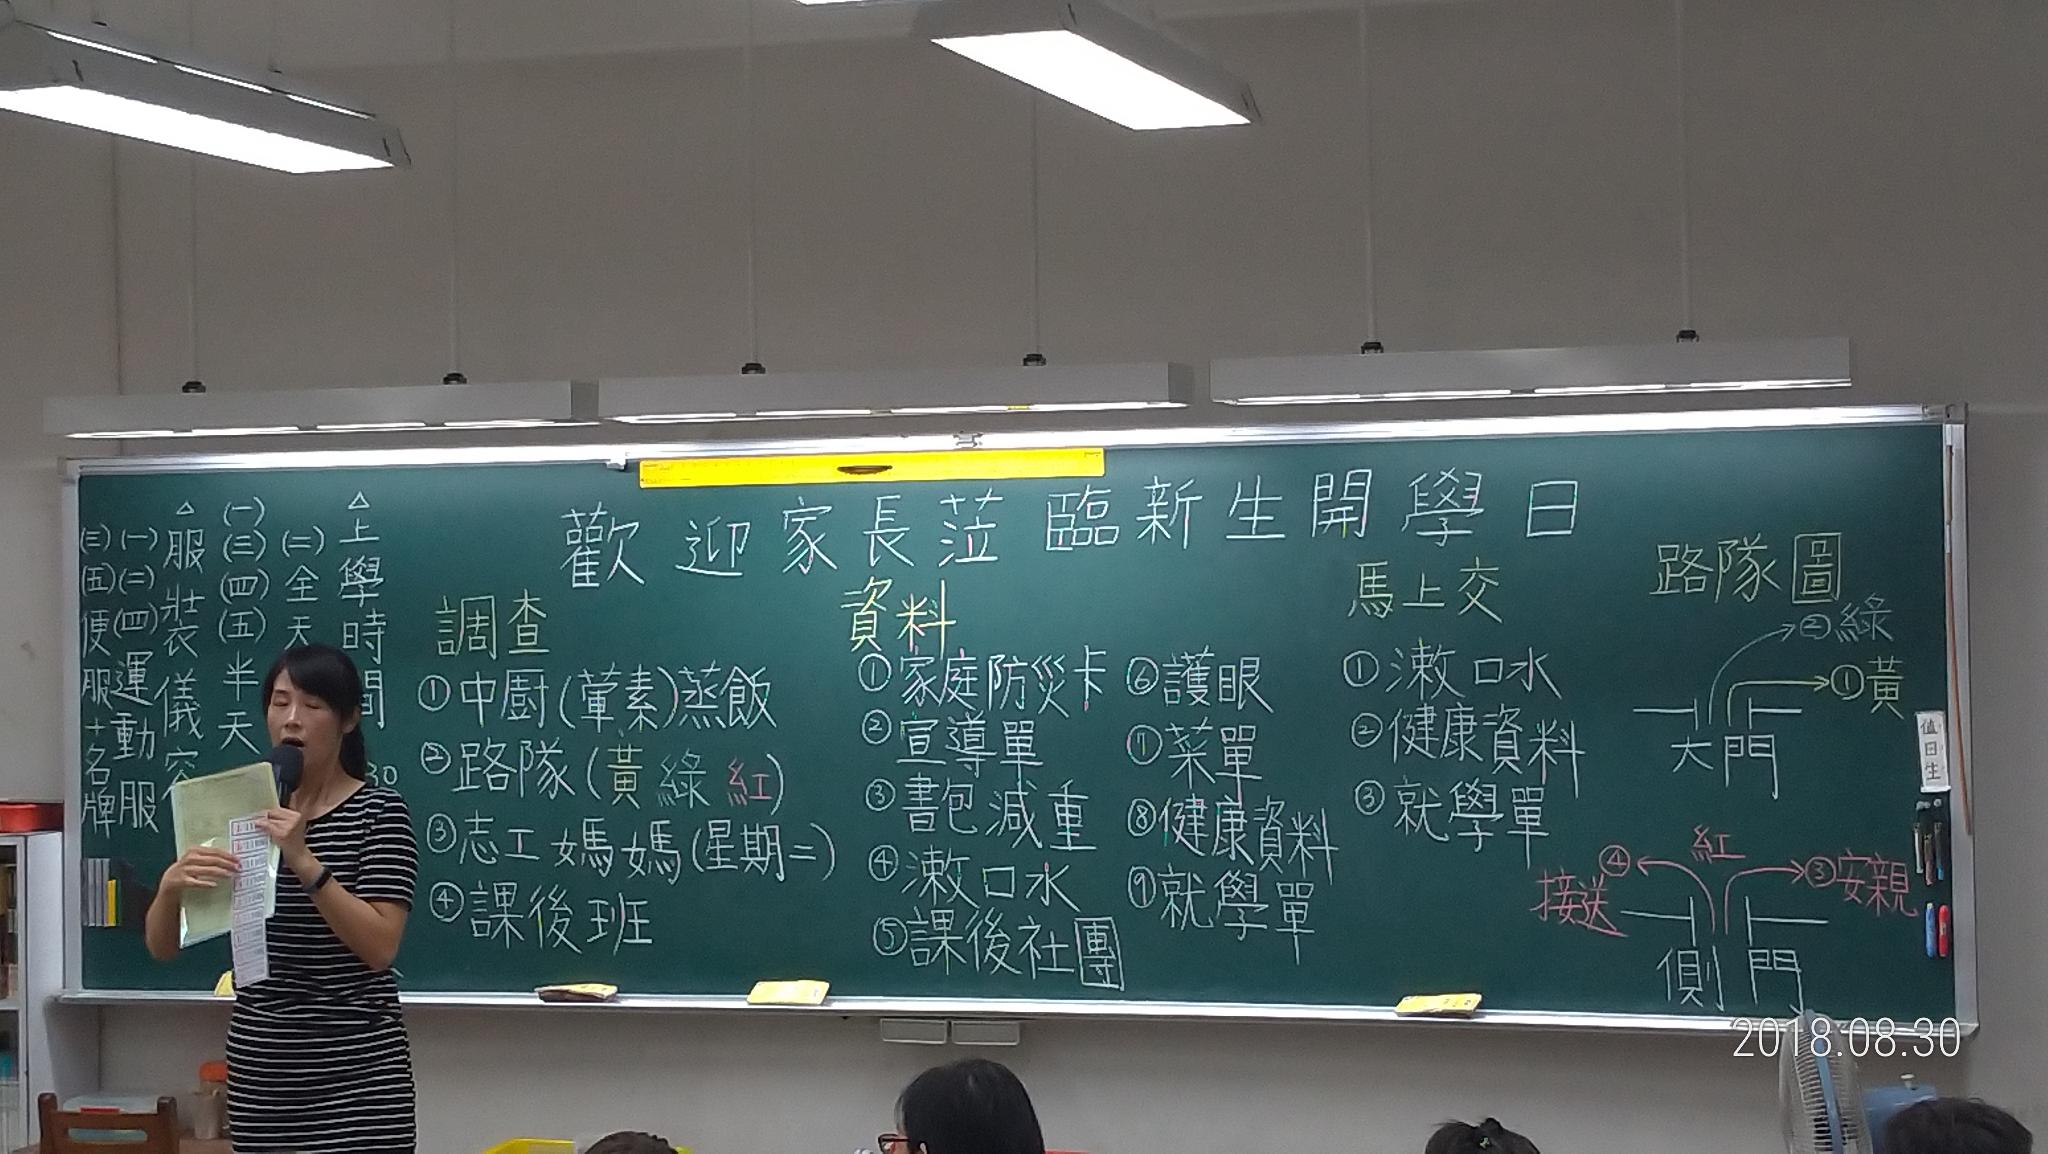 歡迎家長蒞臨新生開學日
△上學時間
30
(二)全天
(一)(三)(四)(五)半天
△服裝儀容
(一)(二)(四)運動服
(三)(五)便服名牌
調查
①中廚(葷素)蒸飯
②路隊(黃綠紅)
③志工媽媽(星期二)
④課後班
資料
①家庭防災卡
②宣導單
③書包減重
④漱口水
⑤課後社團
⑥護眼
⑦菜單
⑧健康資料
⑨就學單
馬上交
①漱口水
②健康資料
③就學單
路隊圖
②綠
①黃
大門
紅
④接送
③安親
側門
值日生
2018.08.30